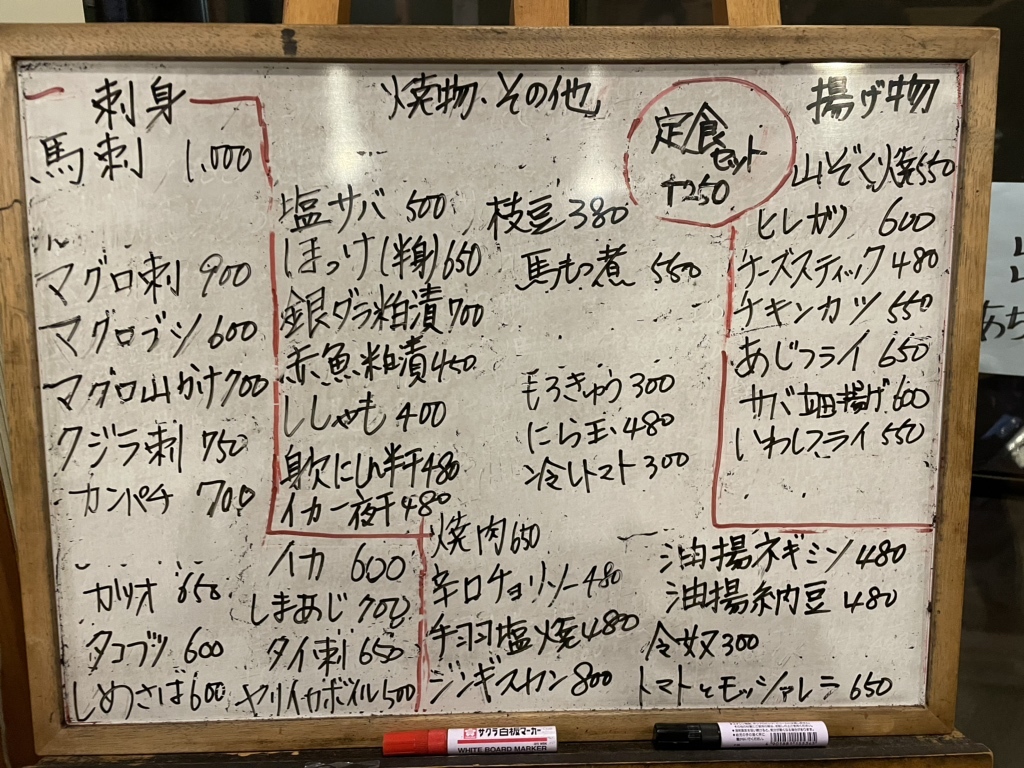 刺身
馬刺 1,000
マグロ刺 900
マグロブツ 600
マグロ山かけ 700
クジラ刺 750
カンパチ 700
カツオ 650
タコブツ 600
しめさば 600
イカ 600
しまあじ 700
タイ刺 650
ヤリイカボイル 500
焼物・その他
塩サバ 500
ほっけ(半身) 650
銀ダラ粕漬 700
赤魚粕漬 450
ししゃも 400
身欠にしん半干 480
イカ一夜干 480
枝豆 380
馬もつ煮 550
もろきゅう 300
にら玉 480
冷しトマト 300
焼肉 650
辛口チョリソー 480
手羽塩焼 480
ジンギスカン 800
油揚ネギミソ 480
油揚納豆 480
冷奴 300
トマトとモッツァレラ 650
定食
セット
↑250
揚げ物
山ぞく焼 550
ヒレカツ 600
チーズスティック 480
チキンカツ 550
あじフライ 650
サバ竜田揚げ 600
いわしフライ 550
サクラ 白板マーカー
WHITE BOARD MARKER